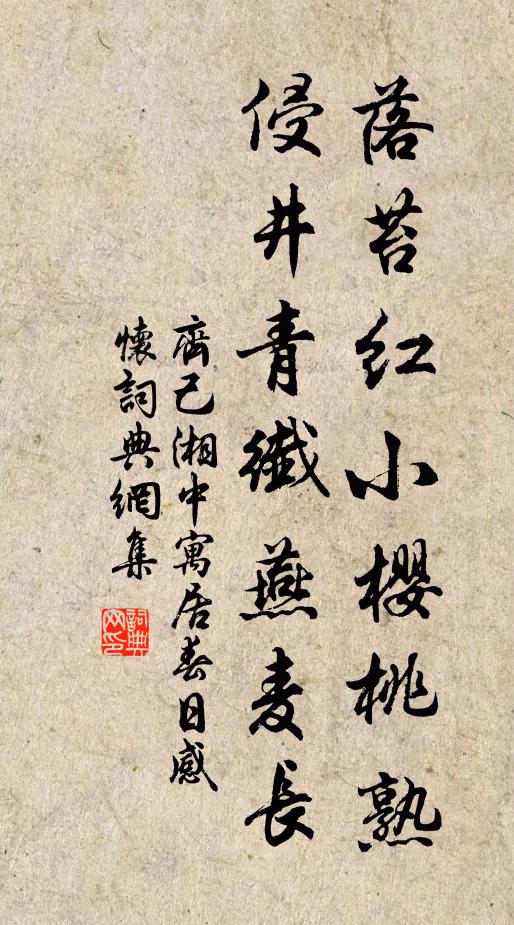 落苔紅小櫻桃熟
侵井青纖燕麦長
齊己湘中寓居春日感
懷詞典網集
詞典
网印